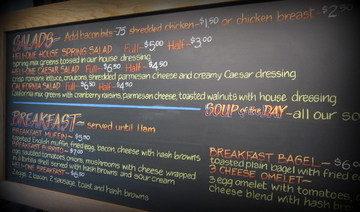 SALADS- Add bacon bits -.75 shredded chicken-$1.50 or chicken breast-$2.50
HOUSE SPRING SALAD Full-$5.00 Half-$3.00
spring mix greens tossed in our house dressing
CAESAR SALAD Full-$6.50 Half-$4.50
crisp romaine lettuce, croutons, shredded parmesan cheese and creamy Caesar dressing
CALIFORNIA SALAD Full-$6.50 Half-$4.50
California mix greens with cranberry raisins, parmesan cheese, toasted walnuts with house dressing
SOUP of the DAY-all our so
BREAKFAST- served until 11am
BREAKFAST MUFFIN-$5.50
toasted English muffin, fried egg, bacon, cheese with hash browns
BREAKFAST BURRITO-$7.00
egg, sautéed tomatoes, onions, mushrooms with cheese wrapped
in a tortilla shell served with hash browns and sour cream
BREAKFAST-$6.50
2 eggs, 2 bacon, 2 sausage, toast and hash browns
BREAKFAST BAGEL-$6.
toasted plain bagel with fried e
3 CHEESE OMELET-
3 egg omelet with tomatoes,
cheese blend with hash br